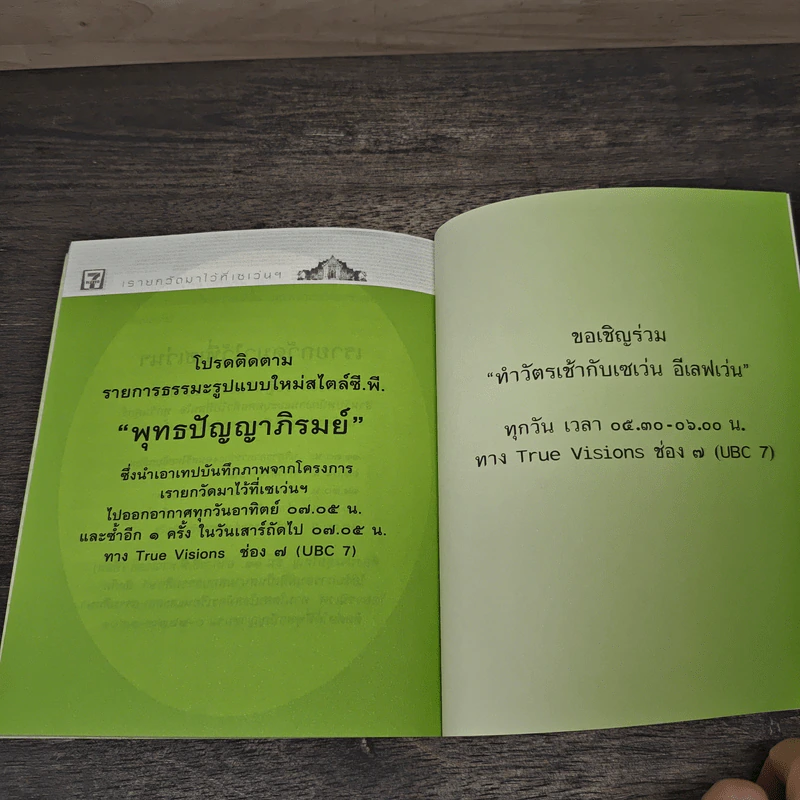 7
เรายกวัดมาไว้ที่เซเว่นฯ
โปรดติดตาม
รายการธรรมะรูปแบบใหม่สไตล์ซี.พี.
“พุทธปัญญาภิรมย์”
ซึ่งนำเอาเทปบันทึกภาพจากโครงการ
เรายกวัดมาไว้ที่เซเว่นฯ
ไปออกอากาศทุกวันอาทิตย์ ๐๗.๐๕ น.
และซ้ำอีก ๑ ครั้ง ในวันเสาร์ถัดไป ๐๗.๐๕ น.
ทาง True Visions ช่อง ๗ (UBC 7)
ขอเชิญร่วม
“ทำวัตรเช้ากับเซเว่น อีเลฟเว่น”
ทุกวัน เวลา ๐๕.๓๐-๐๖.๐๐ น.
ทาง True Visions ช่อง ๗ (UBC 7)